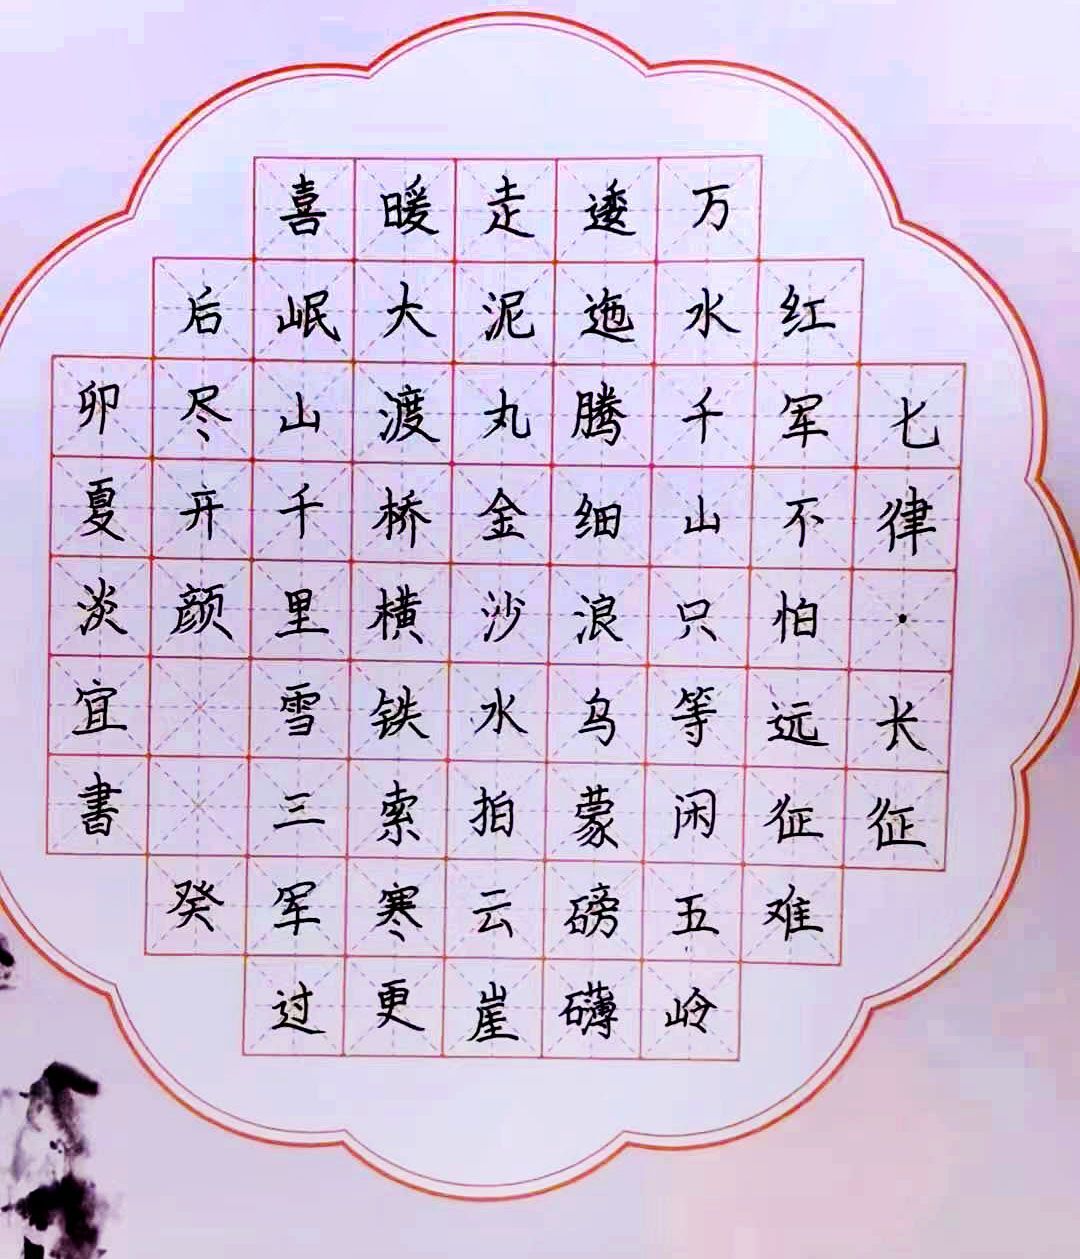 七律·长征
红军不怕远征难
万水千山只等闲五岭
逶迤腾细浪乌蒙磅礴
走泥丸金沙水拍云崖
暖大渡桥横铁索寒更
喜岷山千里雪三军过
后尽开颜 癸
卯夏淡宜書